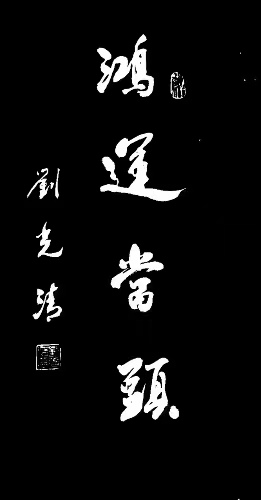 鴻運當頭
劉光清